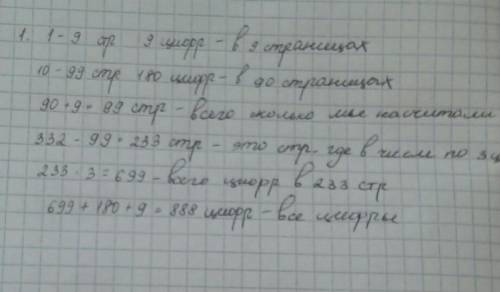 1. 1-9 стр 9 цифр - в 9 страницах
10-99 стр 180 цифр - в 90 страницах
90+9=99 стр - всего сколько мы насчитали
332-99=233 стр - это стр. где в числе по 3 ц
233·3=699 - всего цифр в 233 стр
699+180+9=888 цифр - все цифры